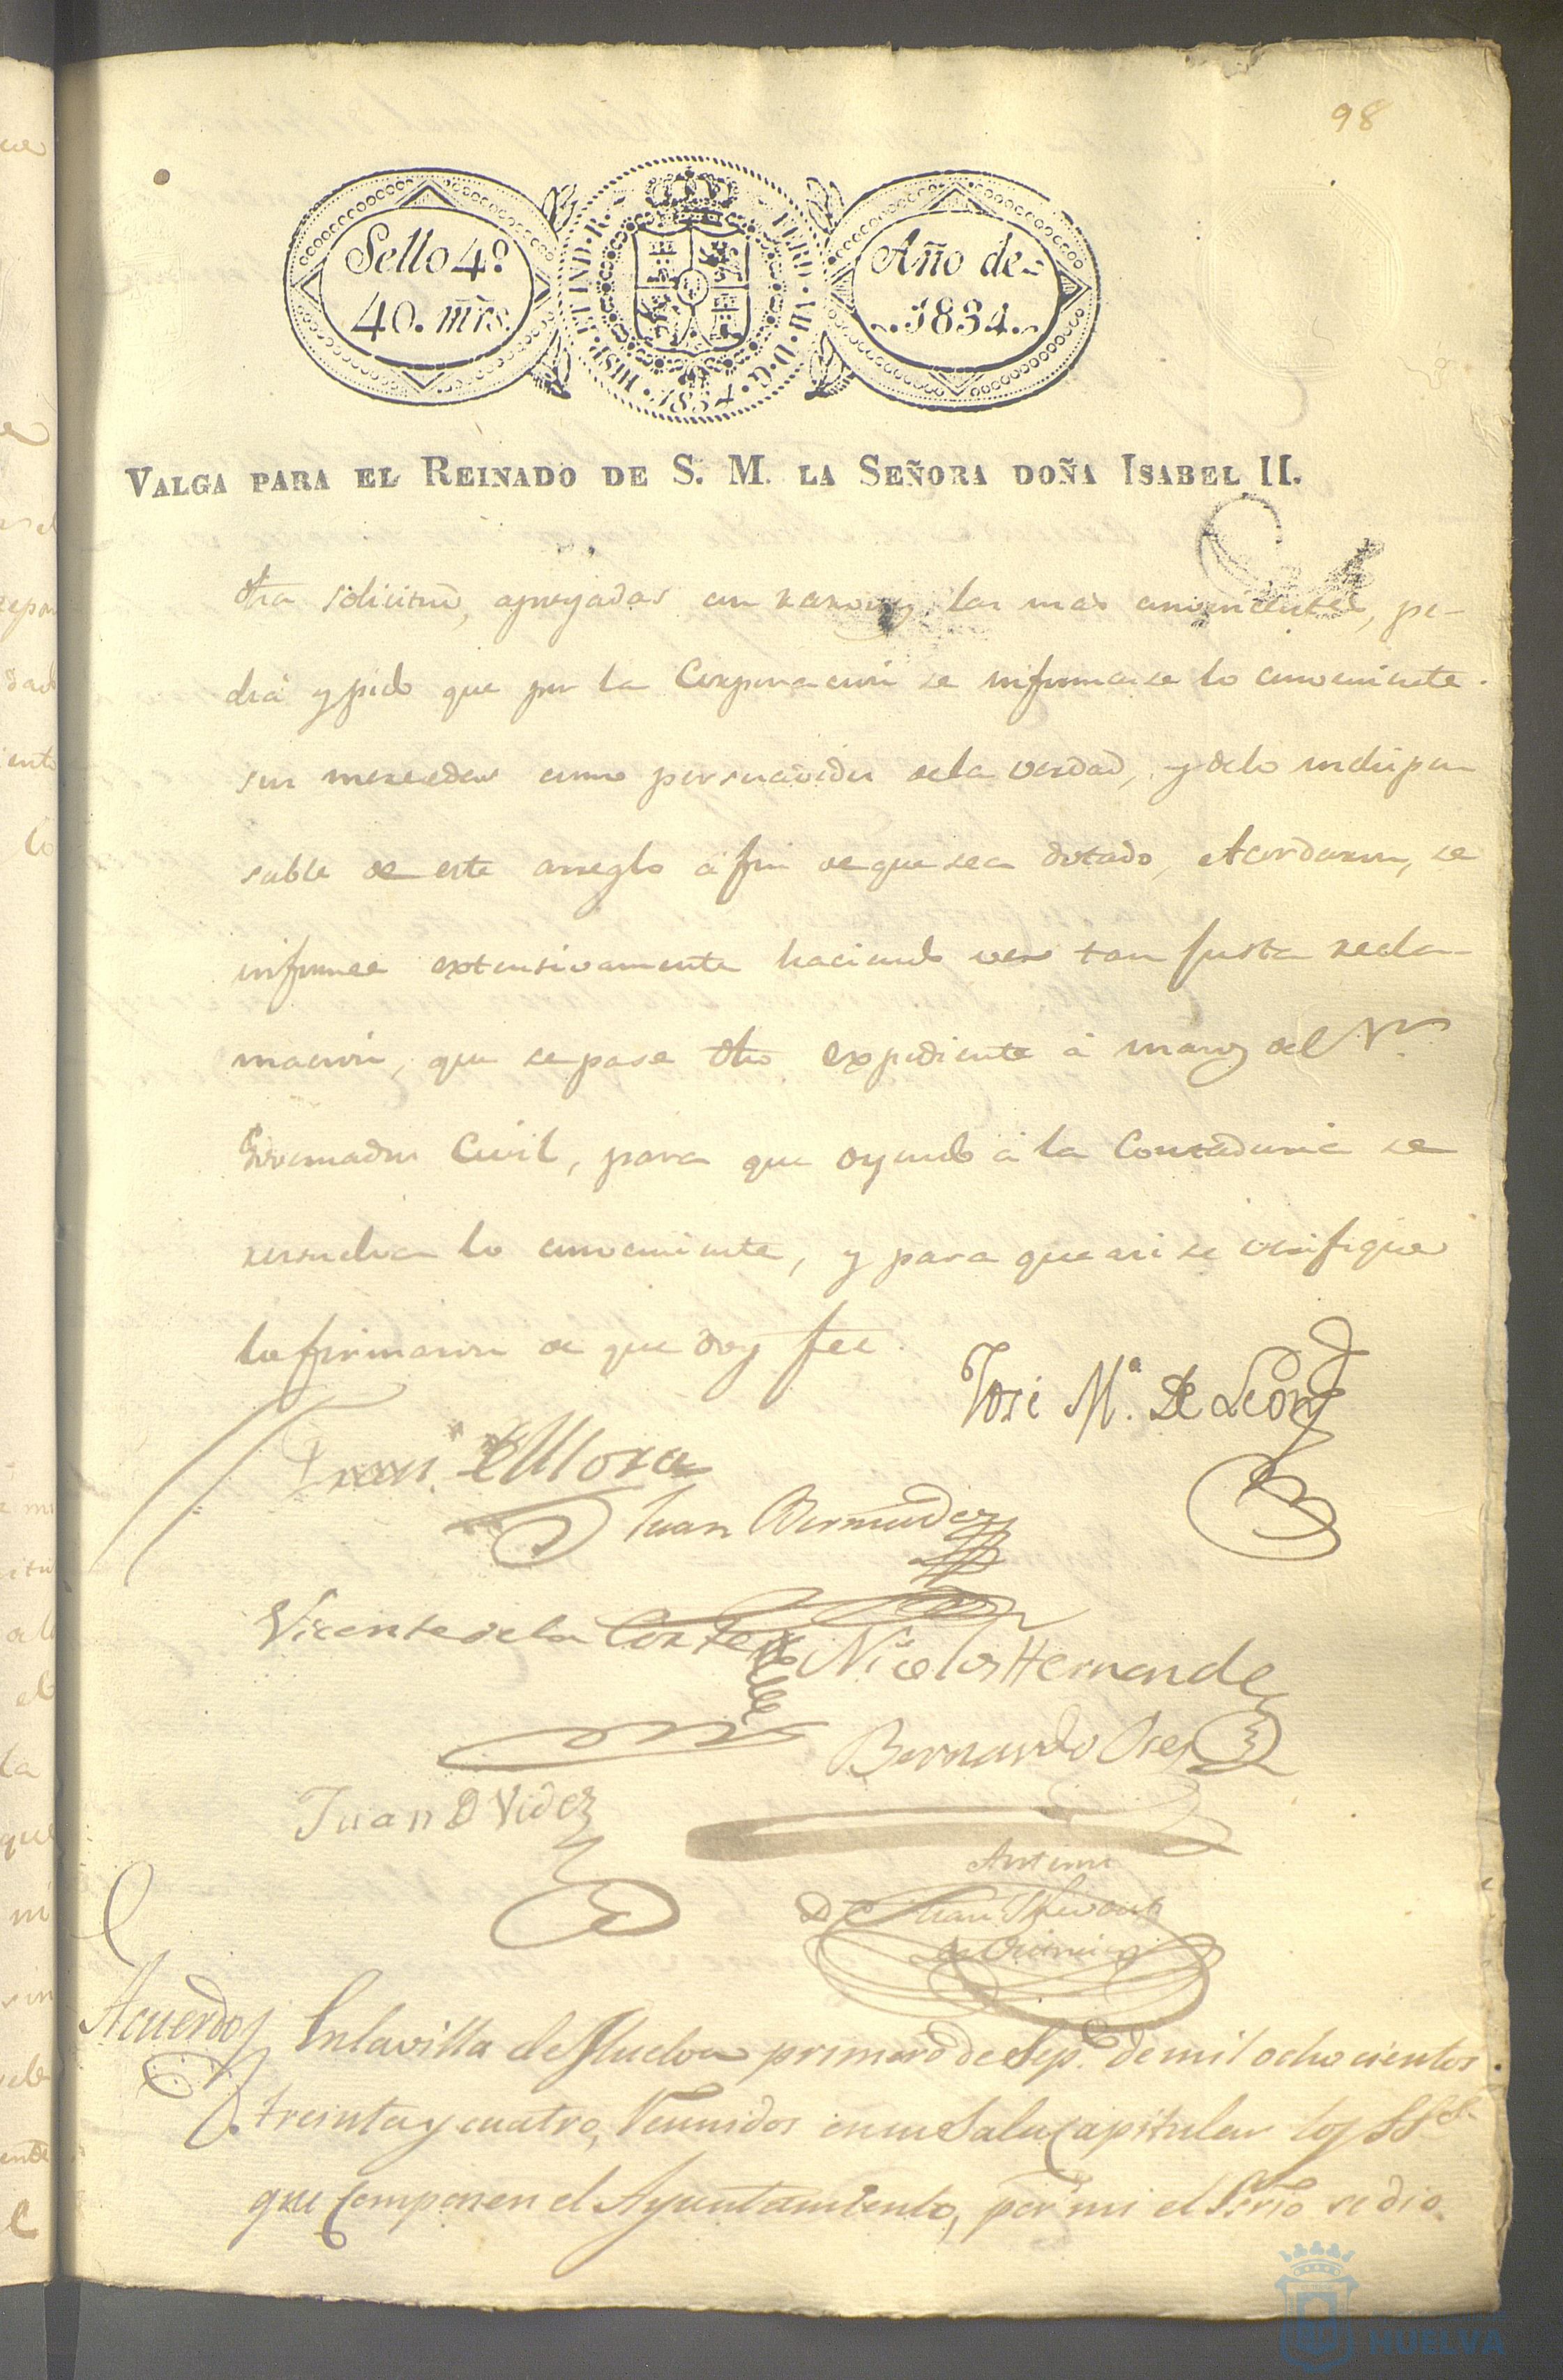 98
Sello 4º
40. mrs.
HISP. ET IND. R.
1834
Año de
1834.
VALGA PARA EL REINADO DE S. M. LA SEÑORA DOÑA ISABEL II.
dha solicitud, apoyadas en razones las mas convincentes, pe-
dia y pido que por la Corporacion se informase lo conveniente.
sus mercedes como persuadidos de la verdad, y delo indispen
sable de este arreglo á fin de que sea dotado, Acordaron, se
informe extensivamente haciendo ver tan justa recla-
macion, que se pase dho expediente á manos del Sr.
Governador Civil, para que oyendo á la Contaduria se
resuelva lo conveniente, y para que asi se verifique
lo firmaron de que doy fee.
José Mª. De Leon
de Mora
Juan Bermudez
Vicente de la Corte
Nicolas Hernandez
Bernardo
Juan D Videz
Ante mi
Juan
Acuerdo
En la villa de Huelva primero de Sep.e de mil ocho cientos
treinta y cuatro, Reunidos en su Sala Capitular los SSres
que Componen el Ayuntamiento, por mi el Srio se dio
HUELVA